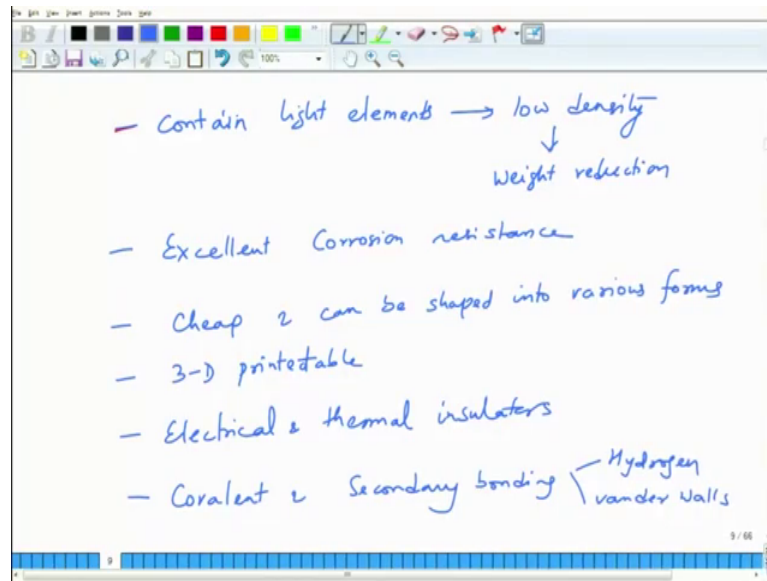 File Edit View Insert Actions Tools Help
B I
100%
– Contain light elements → low density
↓
Weight reduction
– Excellent Corrosion resistance
– Cheap & can be shaped into various forms
– 3-D printetable
– Electrical & thermal insulaters
– Covalent & Secondary bonding Hydrogen
vander Walls
9 / 66
9